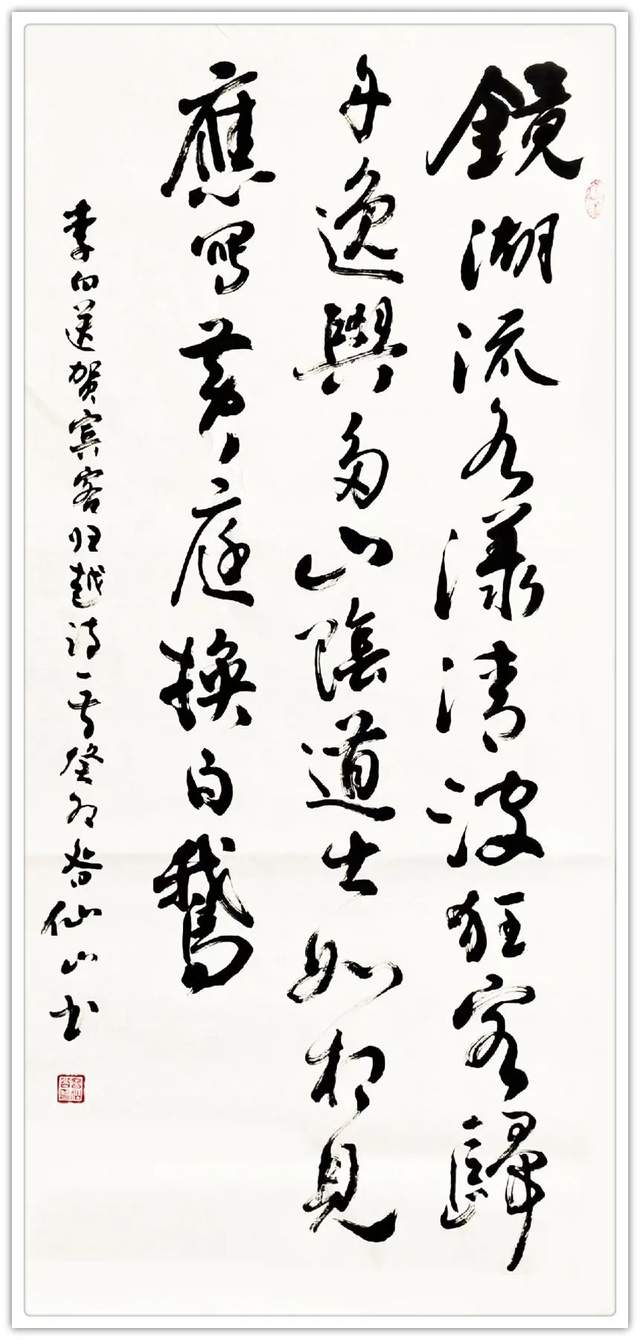 鏡湖流水漾清波狂客歸
舟逸興多山陰道士如相見
應寫黄庭換白鵝
李白送贺宾客归越诗一首癸卯春仙山书